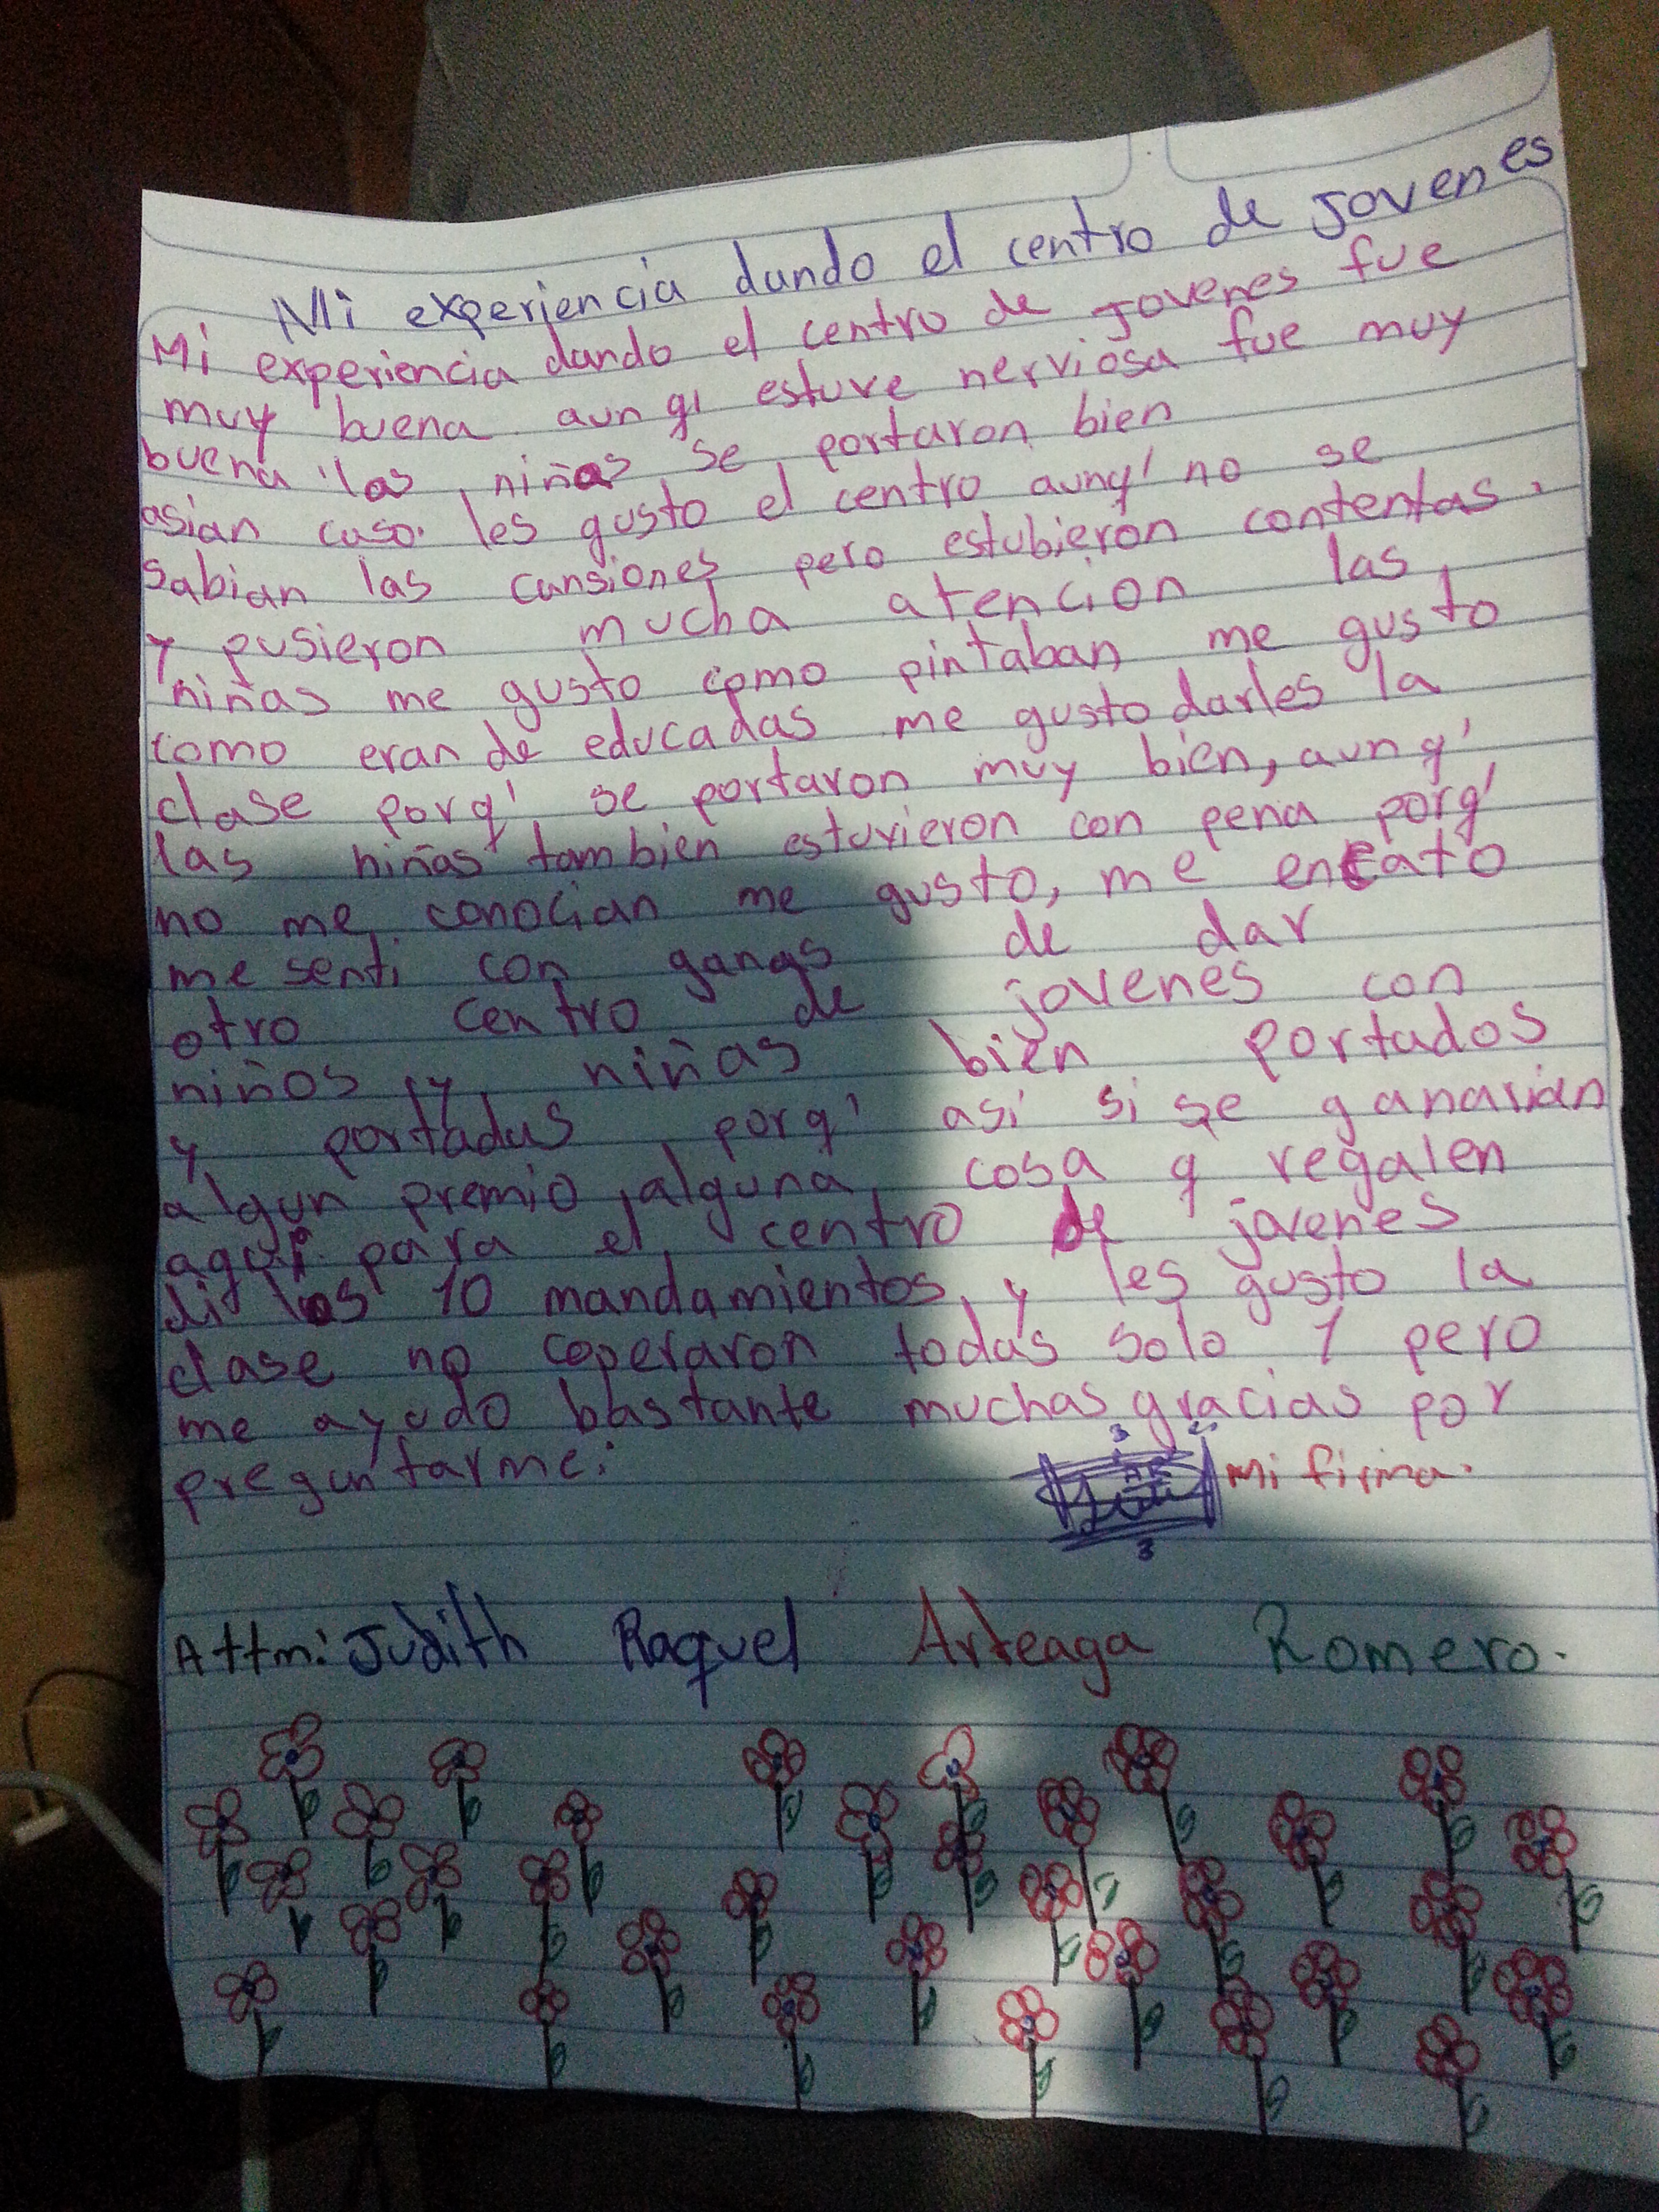 Mi experiencia dando el centro de Jovenes
Mi experiencia dando el centro de Jovenes fue
muy buena aunq' estuve nerviosa fue muy
buena las niñas se portaron bien
asian caso. les gusto el centro aunq' no se
sabian las cansiones pero estubieron contentas.
y pusieron mucha atencion las
niñas me gusto como pintaban me gusto
como eran de educadas me gusto darles la
clase porq' se portaron muy bien, aunq'
las niñas tambien estuvieron con pena porq'
no me conocian me gusto, me encato
me senti con ganas de dar
otro centro de jovenes con
niños y niñas bien portados
y portadas porq' asi si se ganarian
algun premio, alguna cosa q regalen
aqui para el centro de jovenes
di los 10 mandamientos, y les gusto la
clase no coperaron todas solo 1 pero
me ayudo bastante muchas gracias por
preguntarme:
Mi firma.
3
Attm: Judith Raquel Arteaga Romero.